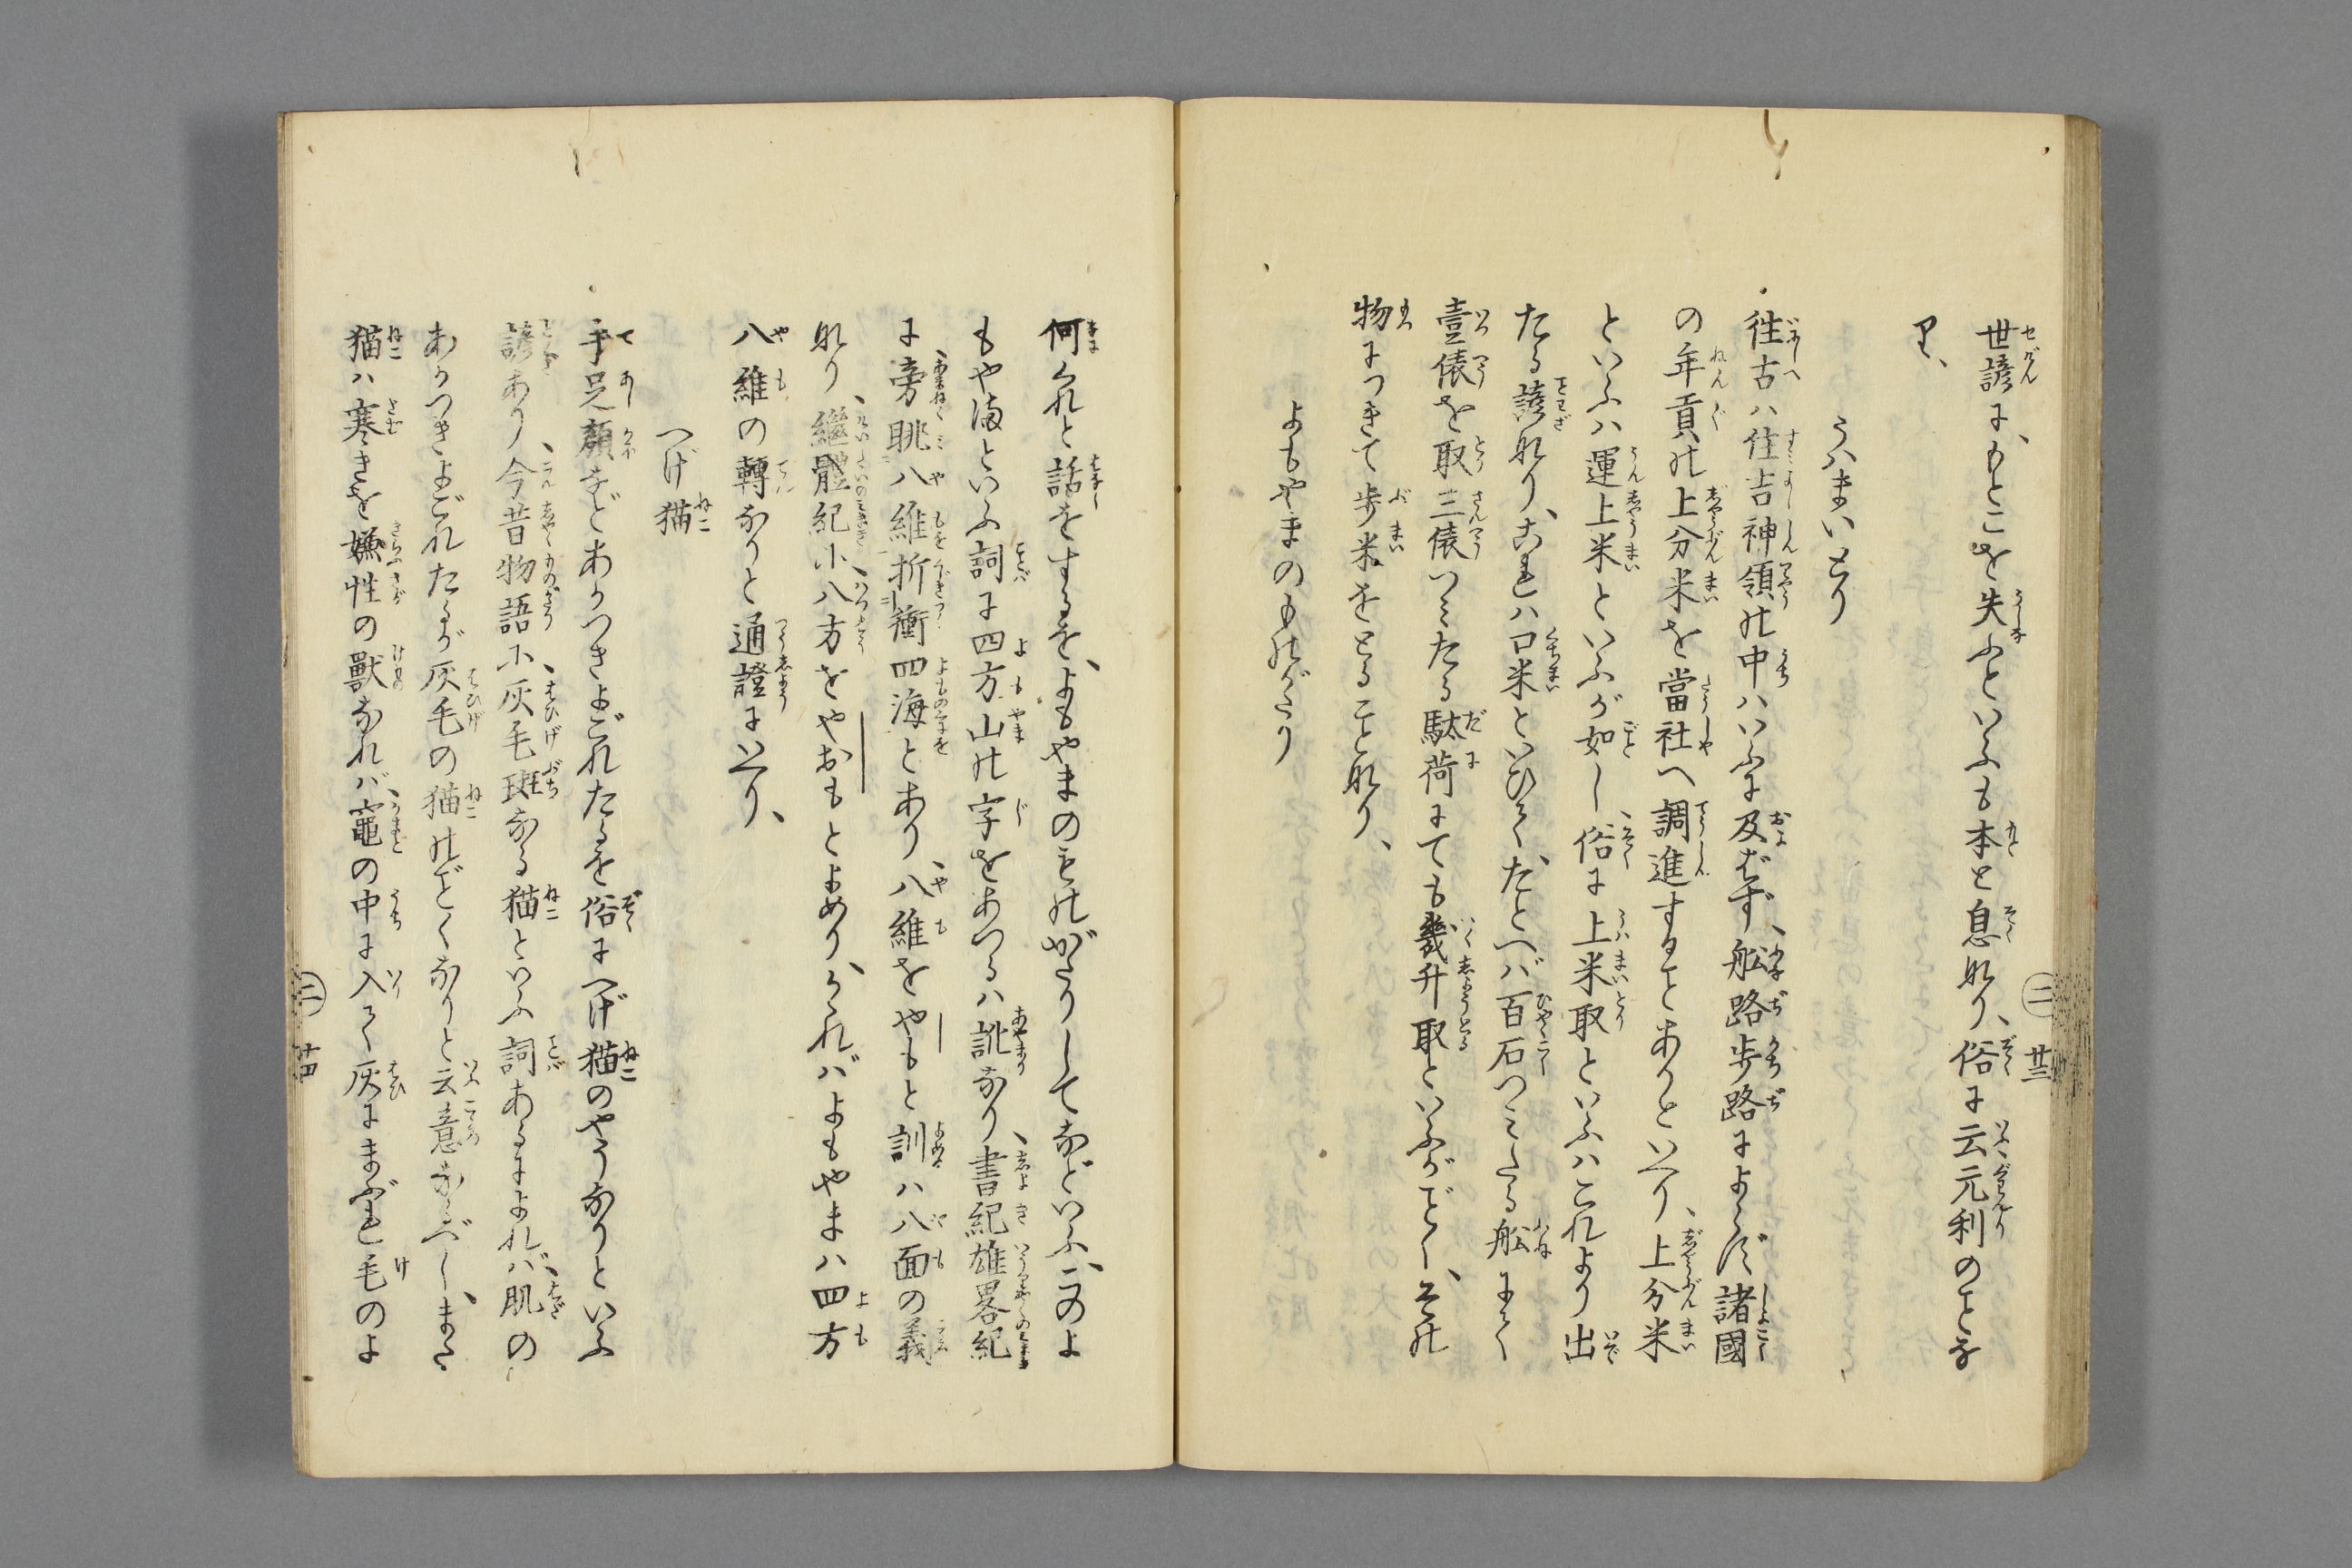 世諺にもとこを失ふといふも本と息なり、俗に云元利のことな
り、
うハまいとり
往古ハ住吉神領の中ハいふに及ばず、舩路歩路によらず諸國
の年貢の上分米を當社へ調進することありといへり、上分米
といふハ運上米といふが如し、俗に上米取といふハこれより出
たる諺なり、これハ口米といひて、たとへバ百石つミたる舩にて
壹俵を取三俵つミたる駄荷にても幾升取といふがごとし、その
物につきて歩米をとることなり、
よもやまのものがたり
二 廿三
何くれと話をするを、よもやまのものがたりしてなどいふ、このよ
もやまといふ詞に四方山の字をあつるハ訛なり、書紀雄畧紀
に、旁眺八維折衝四海とあり、八維をやもと訓ハ八面の義
なり、繼體紀小、八方をやおもとよめり、かゝれバよもやまハ四方
八維の轉なりと通證にいへり、
つげ猫
手足顔などあかつきよごれたるを俗につげ猫のやうなりといふ
諺あり、今昔物語小、灰毛斑なる猫といふ詞あるによれバ、肌の
あかつきよごれたるが灰毛の猫のごとくなりと云意なるべし、また
猫ハ寒きを嫌性の獸なれバ、竈の中に入て灰にまぶれ毛のよ
二 廿四